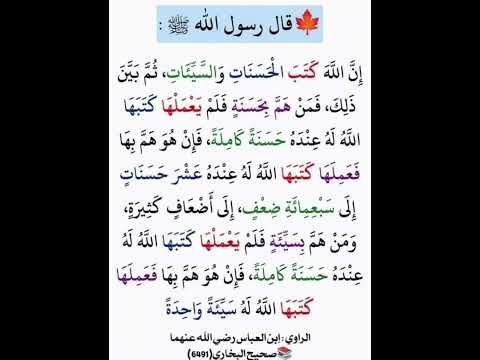 🍁قال رسول الله ﷺ :
إِنَّ اللَّهَ كَتَبَ الْحَسَنَاتِ وَالسَّيِّئَاتِ، ثُمَّ بَيَّنَ
ذَلِكَ، فَمَنْ هَمَّ بِحَسَنَةٍ فَلَمْ يَعْمَلْهَا كَتَبَهَا
اللَّهُ لَهُ عِنْدَهُ حَسَنَةً كَامِلَةً، فَإِنْ هُوَ هَمَّ بِهَا
فَعَمِلَهَا كَتَبَهَا اللَّهُ لَهُ عِنْدَهُ عَشْرَ حَسَنَاتٍ
إِلَى سَبْعِمِائَةِ ضِعْفٍ، إِلَى أَضْعَافٍ كَثِيرَةٍ،
وَمَنْ هَمَّ بِسَيِّئَةٍ فَلَمْ يَعْمَلْهَا كَتَبَهَا اللَّهُ لَهُ
عِنْدَهُ حَسَنَةً كَامِلَةً، فَإِنْ هُوَ هَمَّ بِهَا فَعَمِلَهَا
كَتَبَهَا اللَّهُ لَهُ سَيِّئَةً وَاحِدَةً
الراوي : ابن العباس رضي الله عنهما
📚صحيح البخاري (6491)